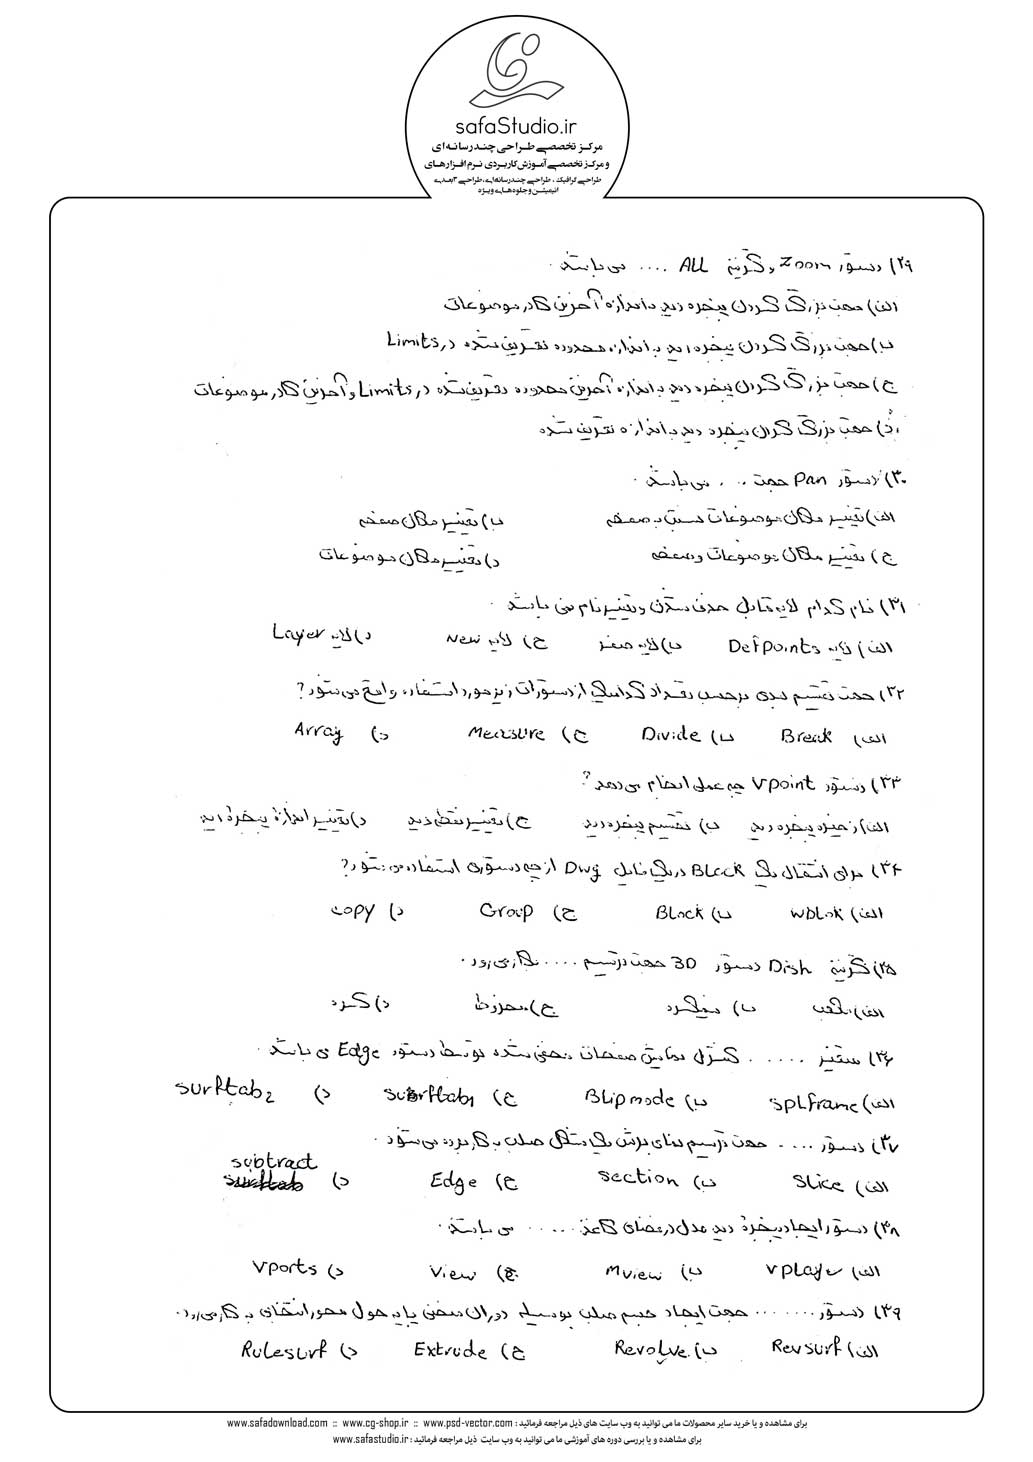 safaStudio.ir
مرکز تخصصی طراحی چندرسانه‌ای
و مرکز تخصصی آموزش کاربردی نرم افزارهای
طراحی گرافیک ، طراحی چندرسانه‌ای، طراحی ۳بعدی
انیمیشن و جلوه‌های ویژه
۲۹) دستور Zoom و گزینه ALL .... می باشد.
الف) جهت بزرگ کردن پنجره دید به اندازه آخرین کادر موضوعات
ب) جهت بزرگ کردن پنجره دید به اندازه محدوده تعریف شده در Limits
ج) جهت بزرگ کردن پنجره دید به اندازه آخرین محدوده تعریف شده در Limits و آخرین کادر موضوعات
د) جهت بزرگ کردن پنجره دید به اندازه تعریف شده
۳۰) دستور Pan جهت ... می باشد.
الف) تغییر مکان موضوعات نسبت به صفحه ب) تغییر مکان صفحه
ج) تغییر مکان موضوعات و صفحه د) تغییر مکان موضوعات
۳۱) نام کدام لایه قابل حذف شدن و تغییر نام نمی باشد.
الف) لایه Defpoints ب) لایه صفر ج) لایه New د) لایه Layer
۳۲) جهت تقسیم بندی برحسب تعداد کدامیک از دستورات زیر مورد استفاده واقع می شود؟
الف) Break ب) Divide ج) Measure د) Array
۳۳) دستور Vpoint چه عملی انجام می دهد؟
الف) ذخیره پنجره دید ب) تقسیم پنجره دید ج) تغییر نقطه دید د) تغییر اندازه پنجرهٔ دید
۳۴) برای انتقال یک Block در یک فایل Dwg از چه دستوری استفاده می شود؟
الف) Wblok ب) Block ج) Group د) copy
۳۵) گزینه Dish دستور 3D جهت ترسیم .... بکار می رود.
الف) مکعب ب) نیمکره ج) مخروط د) کره
۳۶) متغیر ...... کنترل نمایش صفحات مخفی شده توسط دستور Edge می باشد.
الف) splframe ب) Blipmode ج) surftab1 د) surftab2
۳۷) دستور .... جهت ترسیم نمای برش یک شکل صلب به کار برده می شود.
الف) Slice ب) section ج) Edge د) subtract
۳۸) دستور ایجاد پنجرهٔ دید مدل در فضای کاغذ ..... می باشد.
الف) vplayer ب) Mview ج) View د) Vports
۳۹) دستور ....... جهت ایجاد جسم صلب بوسیله دوران منحنی پایه حول محور انتخابی به کار می رود.
الف) Revsurf ب) Revolve ج) Extrude د) Rulesurf
برای مشاهده و یا خرید سایر محصولات ما می توانید به وب سایت های ذیل مراجعه فرمائید : www.safadownload.com :: www.cg-shop.ir :: www.psd-vector.com
برای مشاهده و یا بررسی دوره های آموزشی ما می توانید به وب سایت ذیل مراجعه فرمائید : www.safastudio.ir